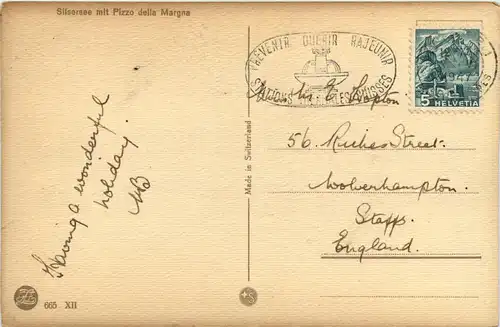 Silsersee mit Pizzo della Margna
Having a wonderful
holiday.
MB
665 XII
Made in Switzerland
PRÉVENIR GUÉRIR RAJEUNIR
STATIONS SUISSES
5 HELVETIA
Upton
56. Riches Street.
Wolverhampton.
Staffs.
England.